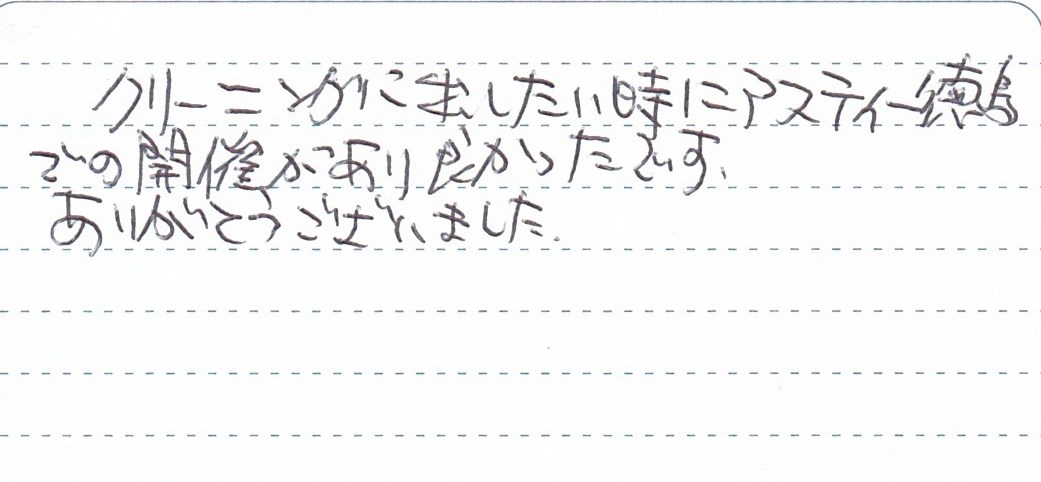 クリーニングに出したい時にアスティー徳島
での開催があり良かったです。
ありがとうございました。